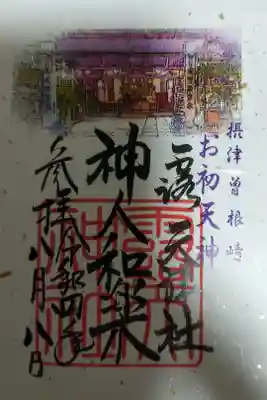 摂津曽根崎
お初天神
露天神社
神人和楽
参拝
令和四年
八月八日